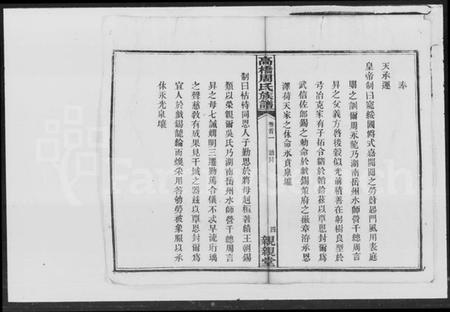 奉
天承運
皇帝制曰寵綏國爵式嘉閥閱之勞蔚起門風用表庭
闈之訓爾周永龍乃湖南岳州水師營千總周言
昇之父義方啟後穀似光前積善在躬樹良型於
弓冶克家有子拓令緒於韜鈐茲以覃恩封爾爲
武信佐郎錫之勅命於戲錫策府之徽章洊承恩
澤荷天家之休命永賁泉壚
高橋周氏族譜
卷首一
誥封
四
親親堂
制曰怙恃同恩人子勤思於將母赳桓著績王朝錫
類以榮親爾吳氏乃湖南岳州水師營千總周言
昇之母七誡嫻明三遷勤篤令儀不忒早流珩瑀
之聲慈教有成果見干城之器茲以覃恩封爾爲
宜人於戲錫龍綸而煥采用答劬勞被象服以承
休永光泉壤